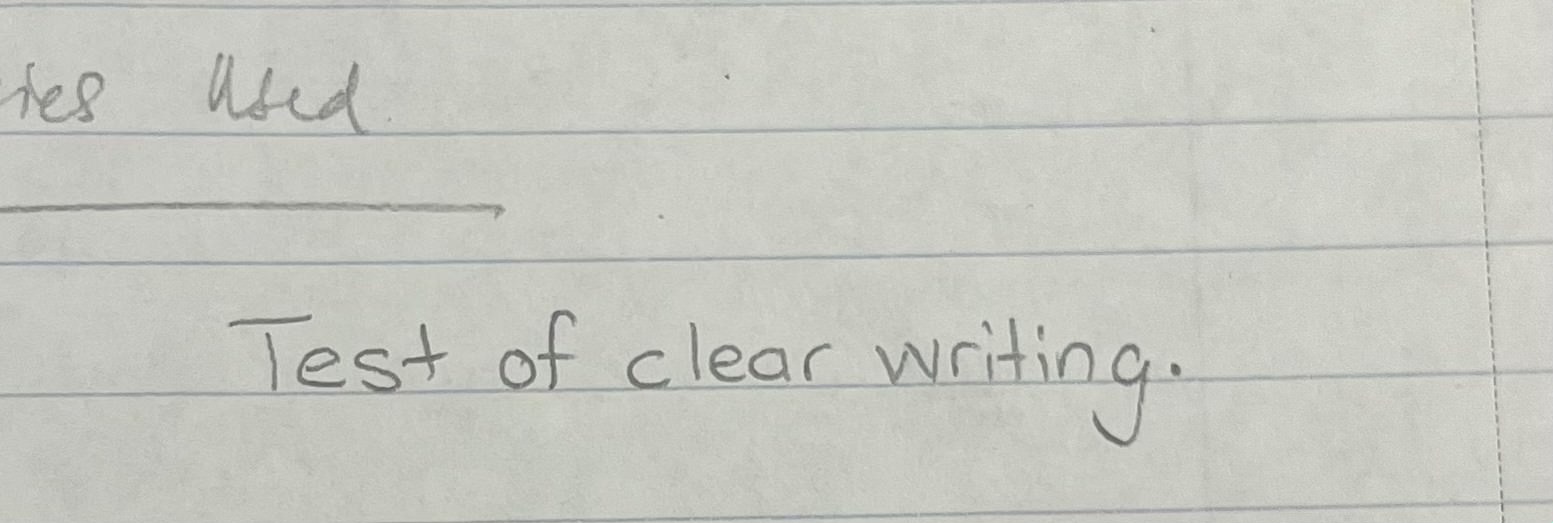 ies Used
Test of clear writing.